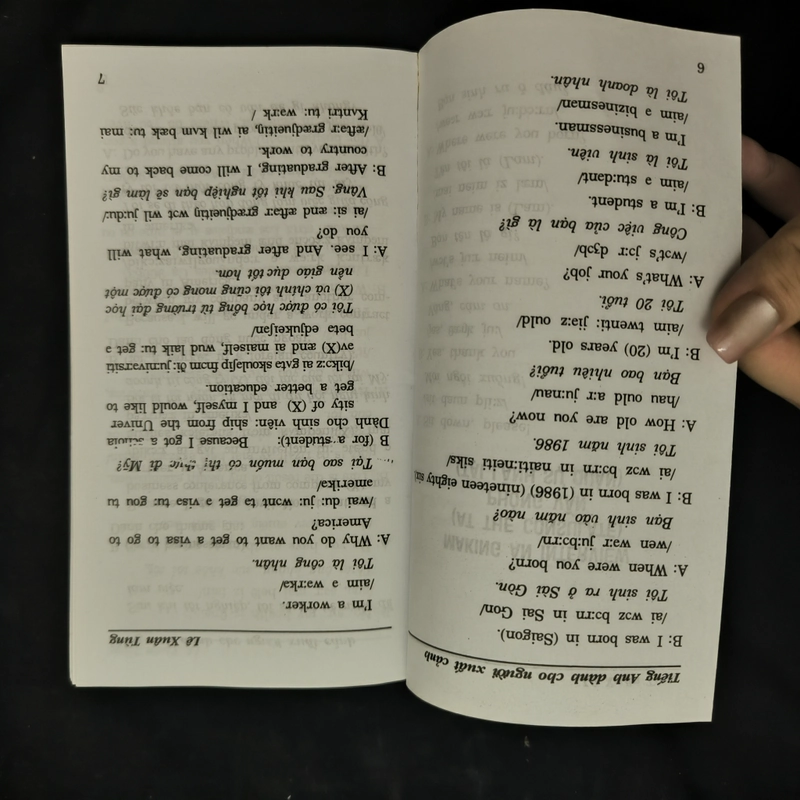 Tiếng Anh dành cho người xuất cảnh
B: I was born in (Saigon).
/ai wɔz bɔ:rn in Sai Gon/
Tôi sinh ra ở Sài Gòn.
A: When were you born?
/wen wə:r ju:bɔ:rn/
Bạn sinh vào năm nào?
B: I was born in (1986) (nineteen eighty six)
/ai wɔz bɔ:rn in naiti:neiti siks/
Tôi sinh năm 1986.
A: How old are you now?
/hau ould a:r ju:nau/
Bạn bao nhiêu tuổi?
B: I'm (20) years old.
/aim twenti: jiə:z ould/
Tôi 20 tuổi.
A: What's your job?
/wɔt's jɔ:r dʒɔb/
Công việc của bạn là gì?
B: I'm a student.
/aim ə stu:dənt/
Tôi là sinh viên.
I'm a businessman.
/aim ə bizinesmən/
Tôi là doanh nhân.
6
Lê Xuân Tùng
I'm a worker.
/aim ə wə:rkə/
Tôi là công nhân.
A: Why do you want to get a visa to go to
America?
/wai du: ju: wɔnt tə get ə visə tu: gou tu
əmerikə/
Tại sao bạn muốn có thị thực đi Mỹ?
B (for a student): Because I got a
Dành cho sinh viên: ship from the Univer
sity of (X) and I myself, would like to
get a better education.
/bikɔ:z ai gɔtə skoulə∫ip frɔm ði: ju:nivə:rsiti
əv(X) ænd ai maiself, wud laik tu: get ə
betə edjukei∫ən/
Tôi có được học bổng từ trường đại học
(X) và chính tôi cũng mong có được một
nền giáo dục tốt hơn.
A: I see. And after graduating, what will
you do?
/ai si: ænd æftə:r grædjueitiŋ wɔt wil ju:du:/
Vâng. Sau khi tốt nghiệp bạn sẽ làm gì?
B: After graduating, I will come back to my
country to work.
/æftə:r grædjueitiŋ, ai wil kʌm bæk tu: mai
Kʌntri tu: wə:rk /
7